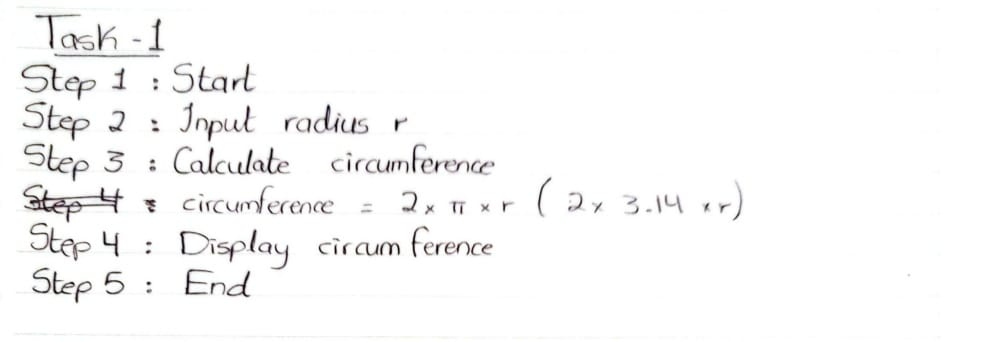 Task - 1
Step 1 : Start
Step 2 : Input radius r
Step 3 : Calculate circumference
Step 4 : circumference = 2 × π × r ( 2 × 3.14 × r)
Step 4 : Display circumference
Step 5 : End